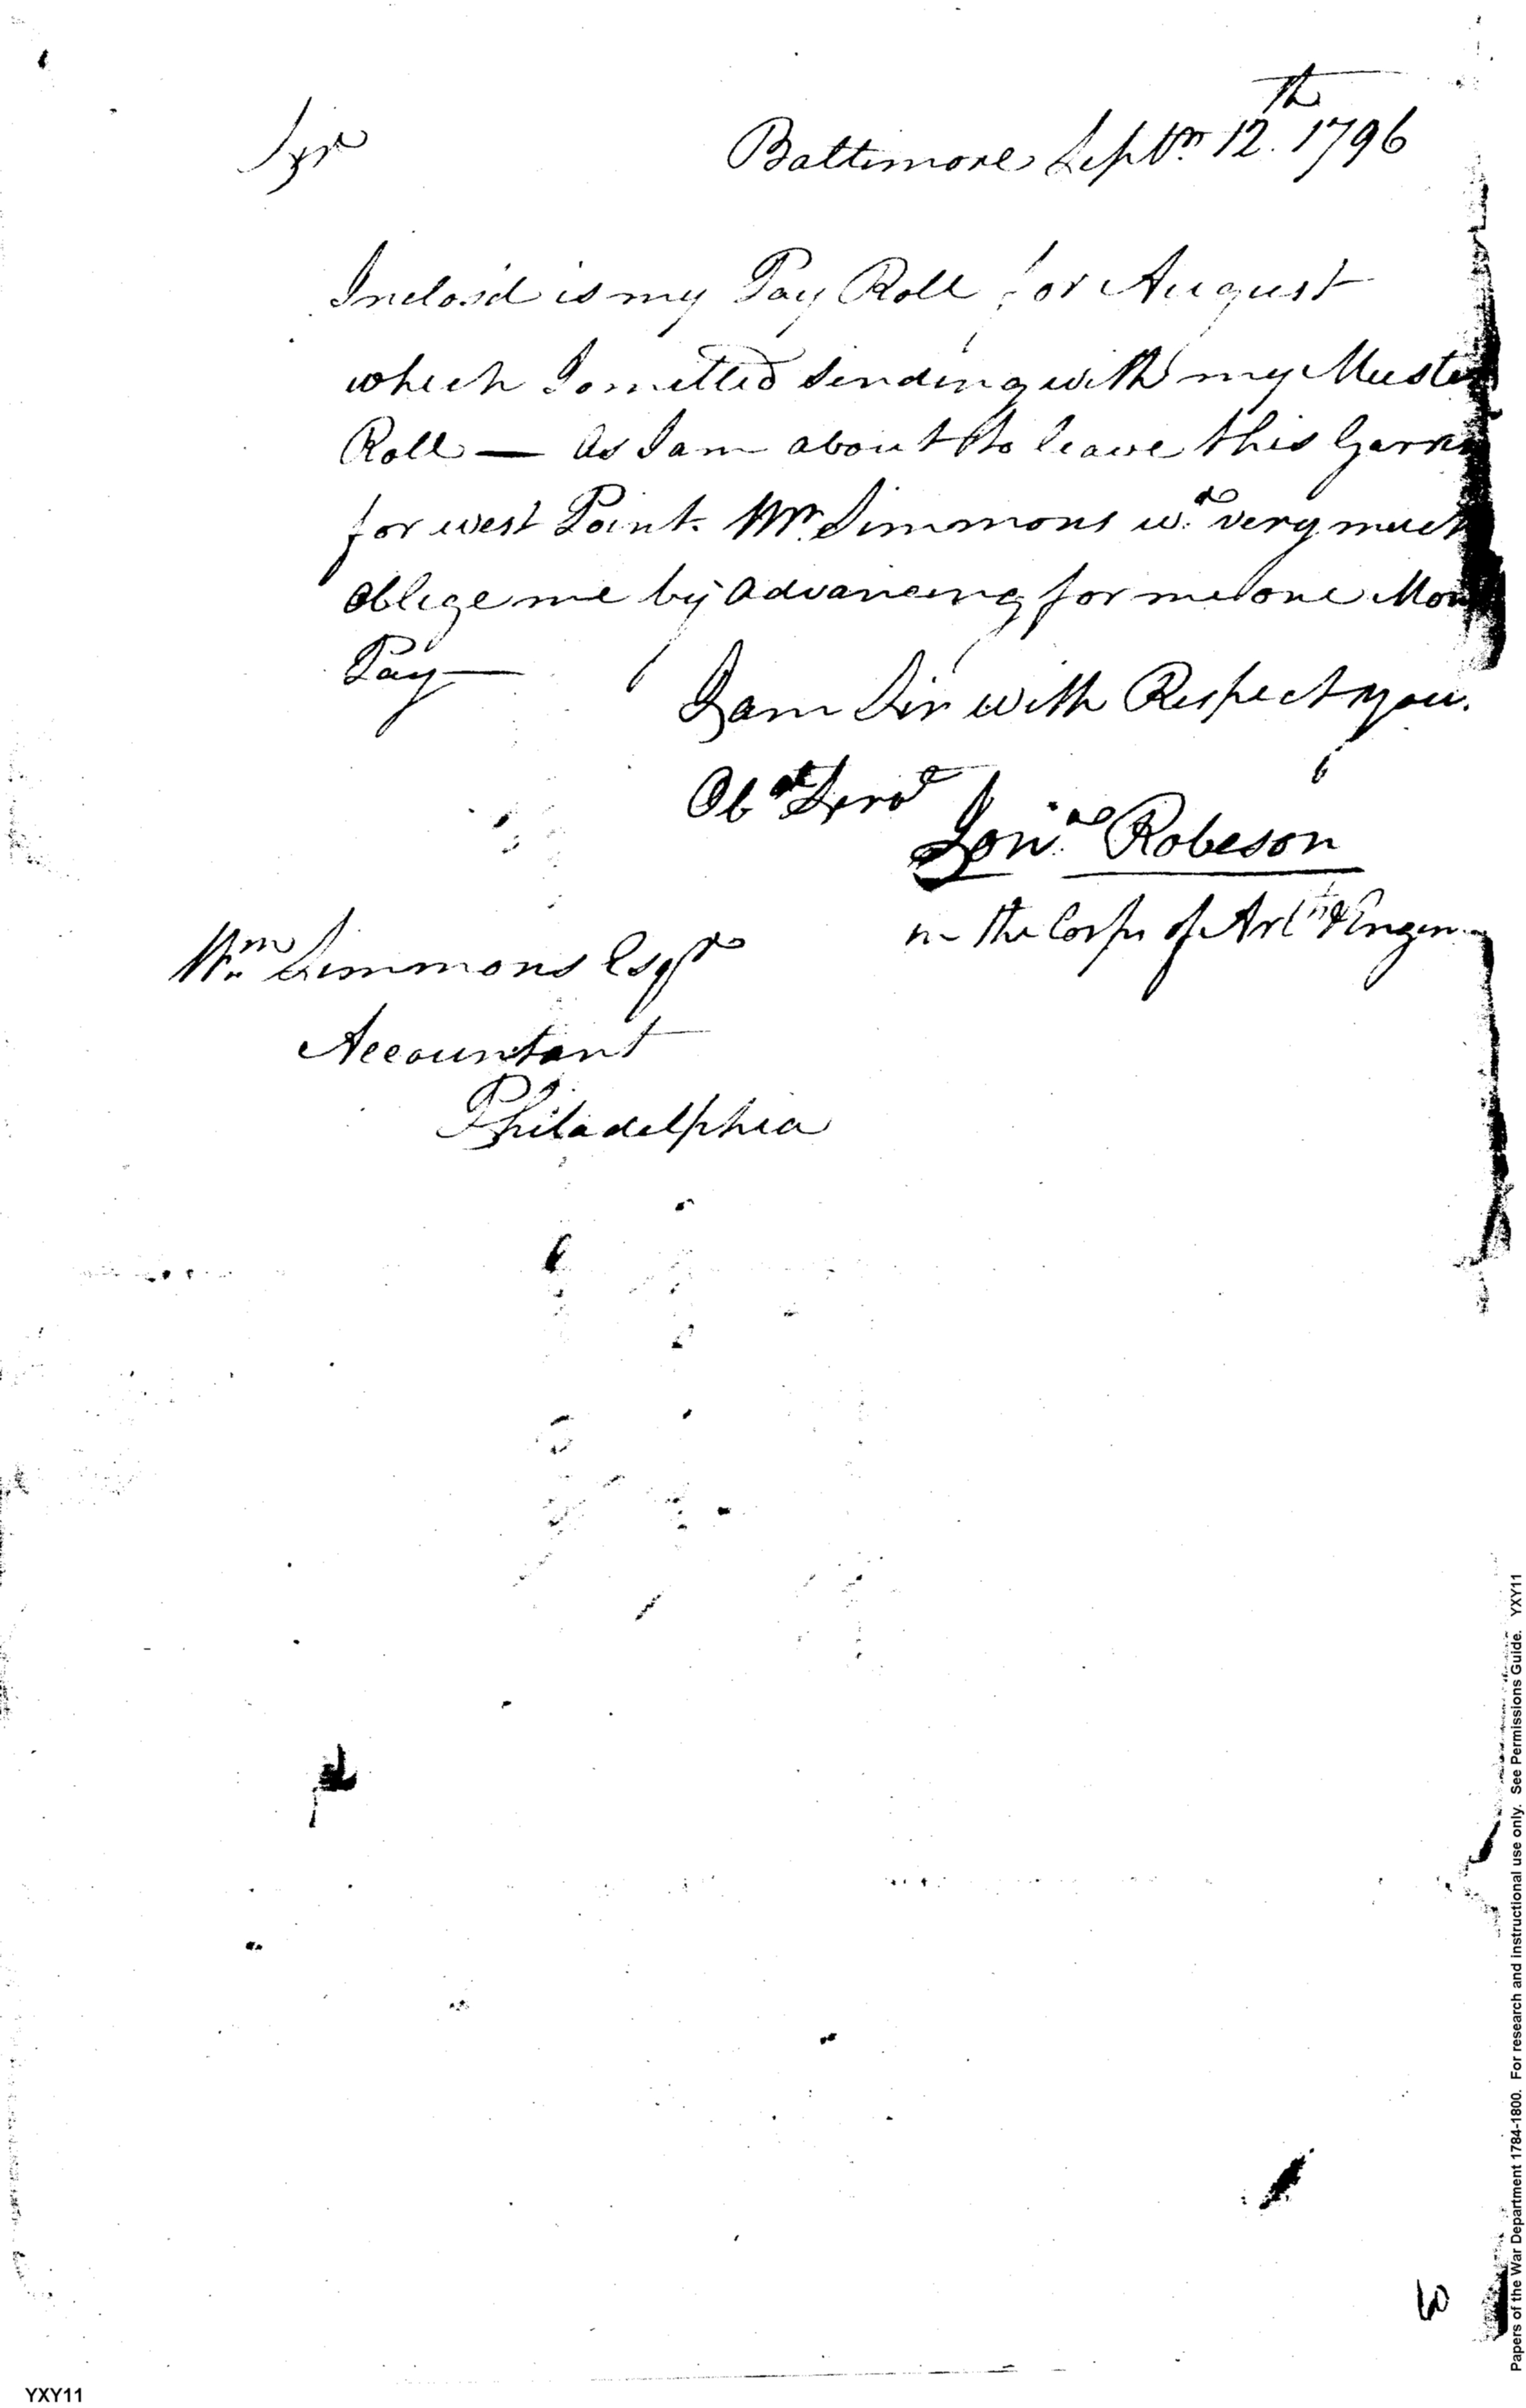 Sir
Baltimore Septm 12th 1796
Inclos'd is my Pay Roll for August
which I omitted sending with my Muster
Roll — As I am about to leave this Garri
for west Point. Mr. Simmons wd. very much
oblige me by advancing for me one Mon
Pay —
I am Sir with Respect you.
Obdt Servt
Jona Robeson
in the Corps of Art & Engin
Wm Simmons Esqr
Accountant
Philadelphia
3
YXY11
Papers of the War Department 1784-1800. For research and instructional use only. See Permissions Guide. YXY11